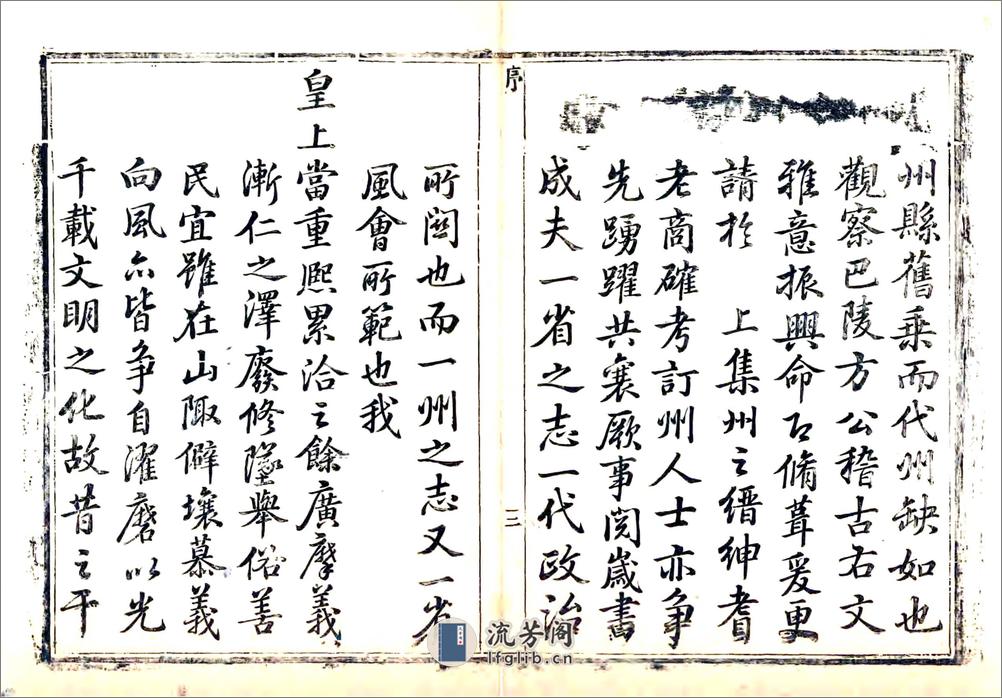 州縣舊乗而代州缺如也
觀察巴陵方公稽古右文
雅意振興命以脩葺爰更
請扵 上集州之縉紳耆
老商確考訂州人士亦爭
先踴躍共襄厥事閱歲書
成夫一省之志一代政治
序
三
所関也而一州之志又一省
風會所範也我
皇上當重熈累洽之餘廣摩義
漸仁之澤廢修墜舉俗善
民宜雖在山陬僻壤慕義
向風亦皆爭自濯磨以光
千載文明之化故昔之干
流芳阁
lfglib.cn